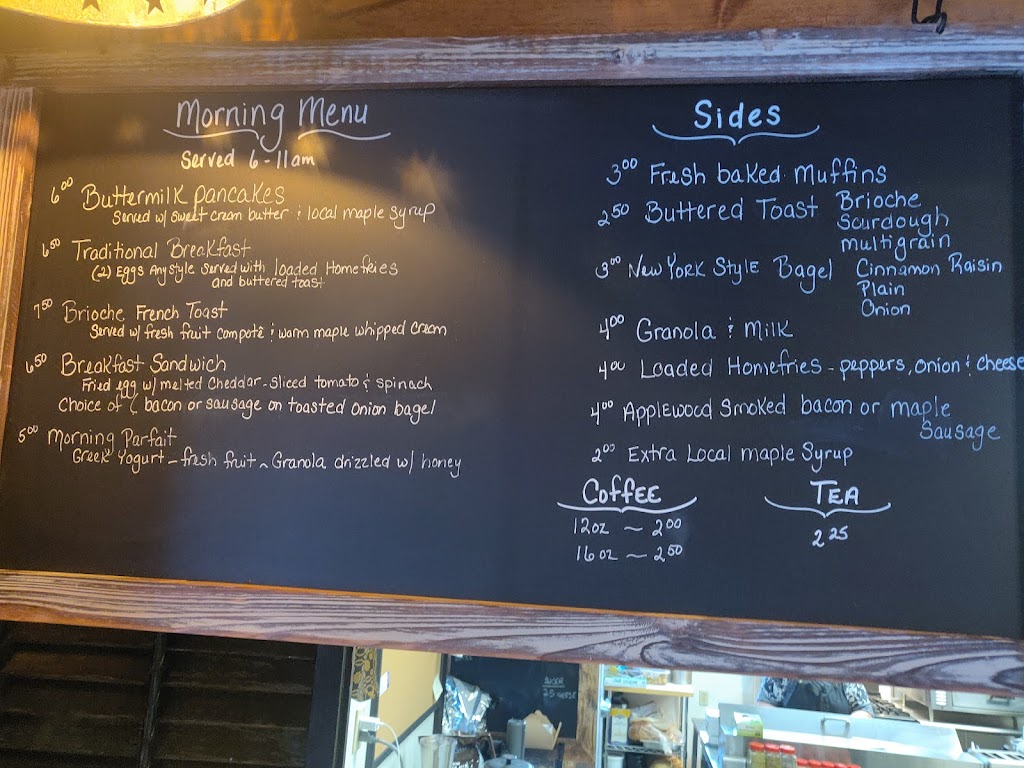 Morning Menu
Served 6-11am
6.00 Buttermilk pancakes
Served w/ sweet cream butter & local maple syrup
6.50 Traditional Breakfast
(2) Eggs Any style served with loaded Homefries
and buttered toast
7.50 Brioche French Toast
Served w/ fresh fruit compote & warm maple whipped cream
6.50 Breakfast Sandwich
Fried egg w/ melted Cheddar - sliced tomato & spinach
Choice of ( bacon or sausage on toasted onion bagel
5.00 Morning Parfait
Greek Yogurt - fresh fruit ~ Granola drizzled w/ honey
Sides
3.00 Fresh baked Muffins
2.50 Buttered Toast Brioche
Sourdough
multigrain
3.00 New York Style Bagel Cinnamon Raisin
Plain
Onion
4.00 Granola & Milk
4.00 Loaded Homefries - peppers, onion & cheese
4.00 Applewood Smoked bacon or maple
Sausage
2.00 Extra Local maple Syrup
Coffee
12oz ~ 2.00
16oz ~ 2.50
Tea
2.25